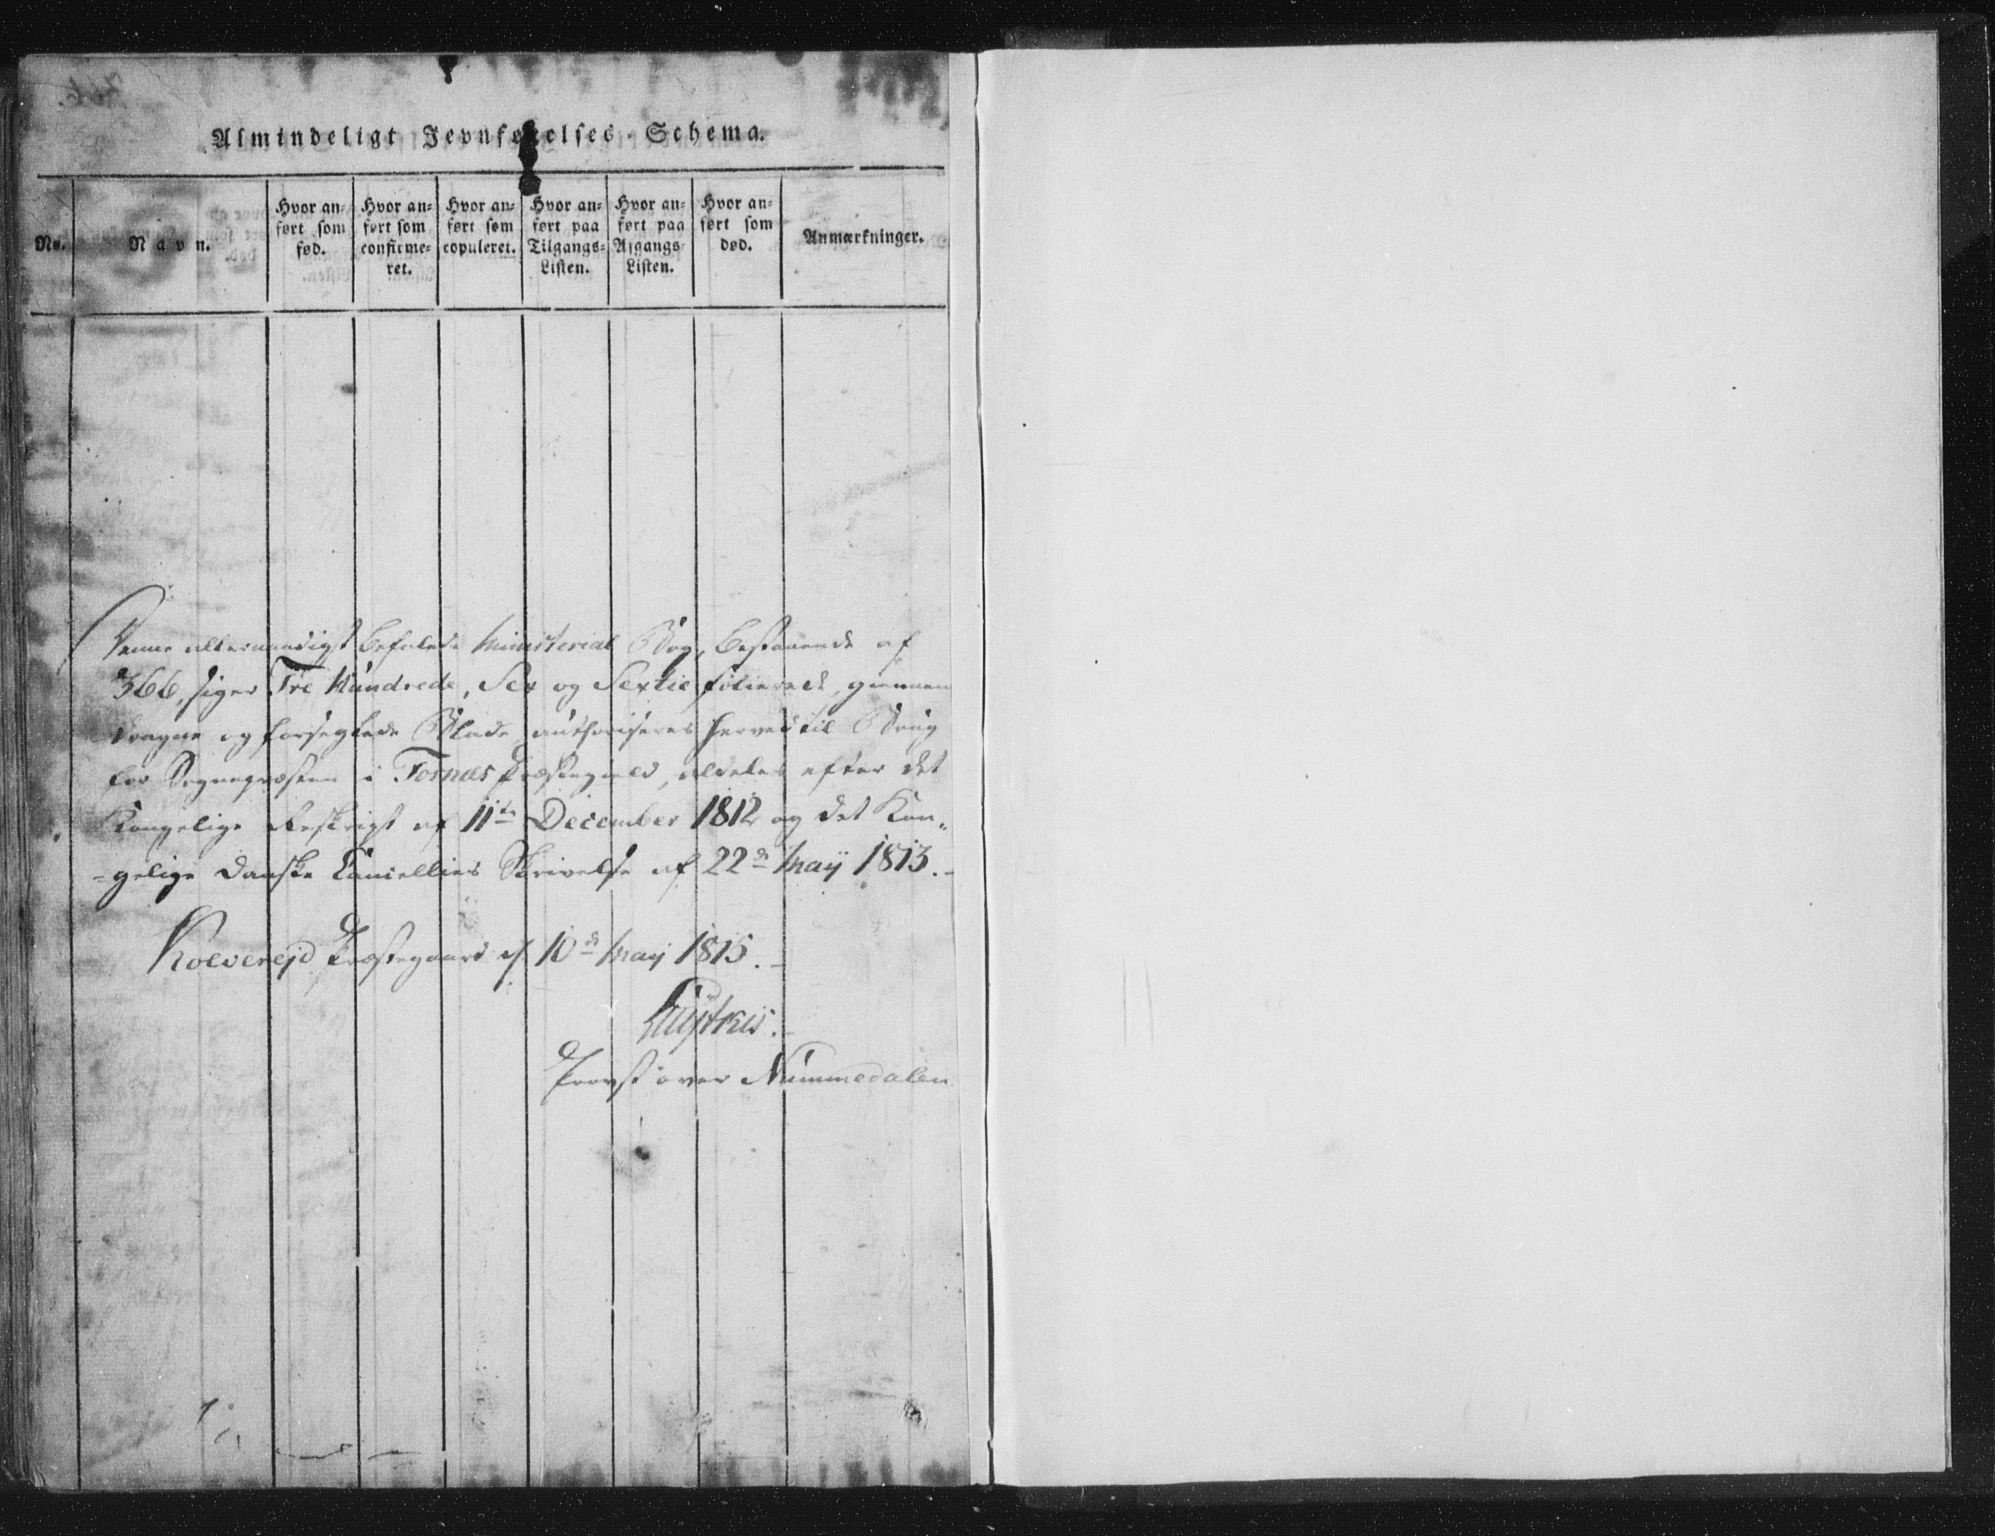 Almindeligt Jevnførelses-Schema.
No.
Navn.
Hvor an-
ført som
fød.
Hvor an-
ført som
confirme-
ret.
Hvor an-
ført som
copuleret.
Hvor an-
ført paa
Tilgangs-
Listen.
Hvor an-
ført paa
Afgangs-
Listen.
Hvor an-
ført som
død.
Anmærkninger.
Denne allernaadigst befalede Ministerial Bog, bestaaende af
366, siger Tre Hundrede, Sex og Sextie folierede, giennem
dragne og forseglede Blade authoriseres herved til Brug
for Sognepræsten i Fosnæs Præstegield, aldeles efter det
Kongelige Reskript af 11te December 1812 og det Kon-
-gelige Danske Cancellies Skrivelse af 22de Maij 1813.
Kolverejd Præstegaard d. 10de Maij 1815.
Provst over Nummedalen